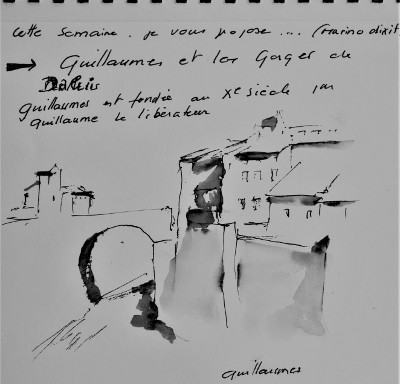 cette semaine. je vous propose ... (marino dixit)
Guillaumes et les Gorges de
Daluis
Guillaumes est fondée au Xe siècle par
Guillaume le libérateur
Guillaumes